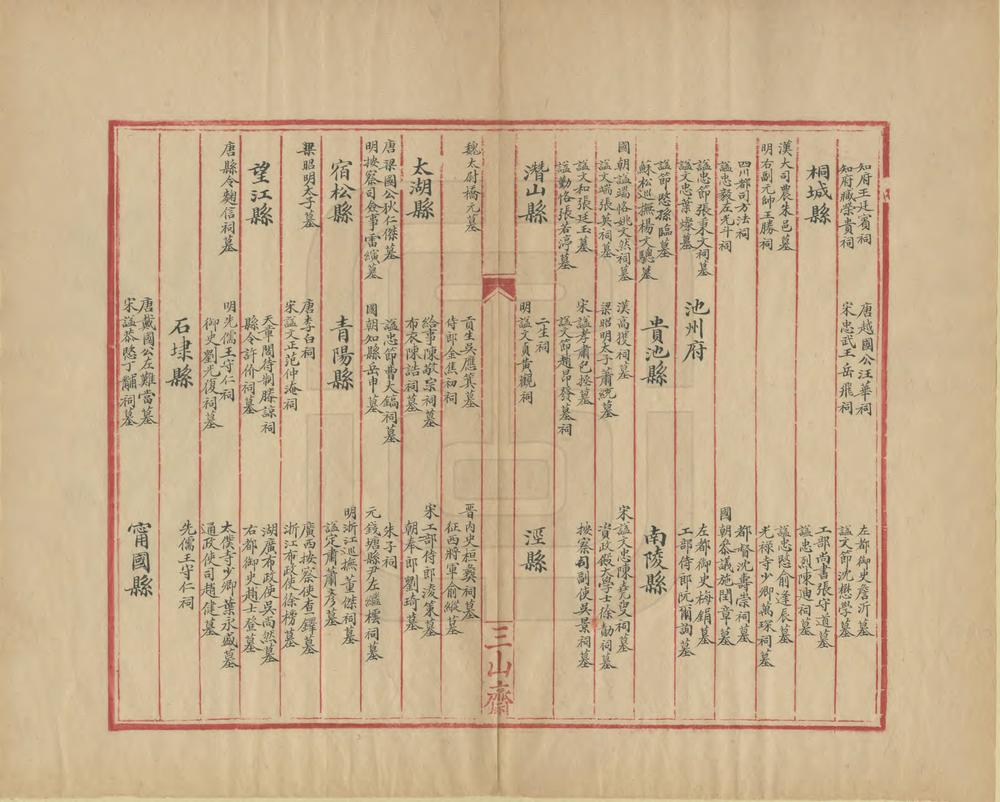 知府王廷賓祠
知府臧榮貴祠
桐城縣
漢大司農朱邑墓
明右副元帥王勝祠
四川都司方法祠
諡忠毅左光斗祠
諡忠節張秉文祠墓
諡文忠葉燦墓
諡節愍孫臨墓
蘇松巡撫楊文驄墓
國朝諡端恪姚文然祠墓
諡文端張英祠墓
諡文和張廷玉墓
諡勤恪張若渟墓
潛山縣
魏太尉橋元墓
太湖縣
唐梁國公狄仁傑墓
明按察司僉事雷縯墓
宿松縣
梁昭明太子墓
望江縣
唐縣令麴信祠墓
唐越國公汪華祠
宋忠武王岳飛祠
池州府
貴池縣
漢高獲祠墓
梁昭明太子蕭統墓
宋諡孝肅包拯墓
諡文節趙昂發墓祠
二生祠
明諡文貞黃觀祠
貢生吳應箕墓
侍郎金焦初祠
給事陳敬宗祠墓
布衣陳誥祠墓
諡忠節曹大鎬祠墓
國朝知縣岳申墓
青陽縣
唐李白祠
宋諡文正范仲淹祠
天章閣侍制滕諒祠
縣令許价祠墓
明先儒王守仁祠
御史劉光復祠墓
石埭縣
唐戴國公左難當墓
宋諡恭愍丁黼祠墓
左都御史詹沂墓
諡文節沈懋學墓
工部尚書張守道墓
諡忠烈陳迪祠墓
諡忠愍俞逢辰墓
光祿寺少卿萬琛祠墓
都督沈壽崇祠墓
國朝叅議施閏章墓
左都御史梅鋗墓
工部侍郎阮爾詢墓
南陵縣
宋諡文忠陳堯叟祠墓
資政殿大學士徐勣祠墓
按察司副使吳景祠墓
涇縣
晉內史桓彝祠墓
征西將軍俞縱墓
宋工部侍郎淩策墓
朝奉郎劉琦墓
朱子祠
元錢塘縣尹左繼樰祠墓
明浙江巡撫董傑祠墓
諡定肅蕭彥墓
廣西按察使查鐸墓
浙江布政使徐楞墓
湖廣布政使吳尚然墓
右都御史趙士登墓
太僕寺少卿葉永盛墓
通政使司趙健墓
先儒王守仁祠
甯國縣
三山齋